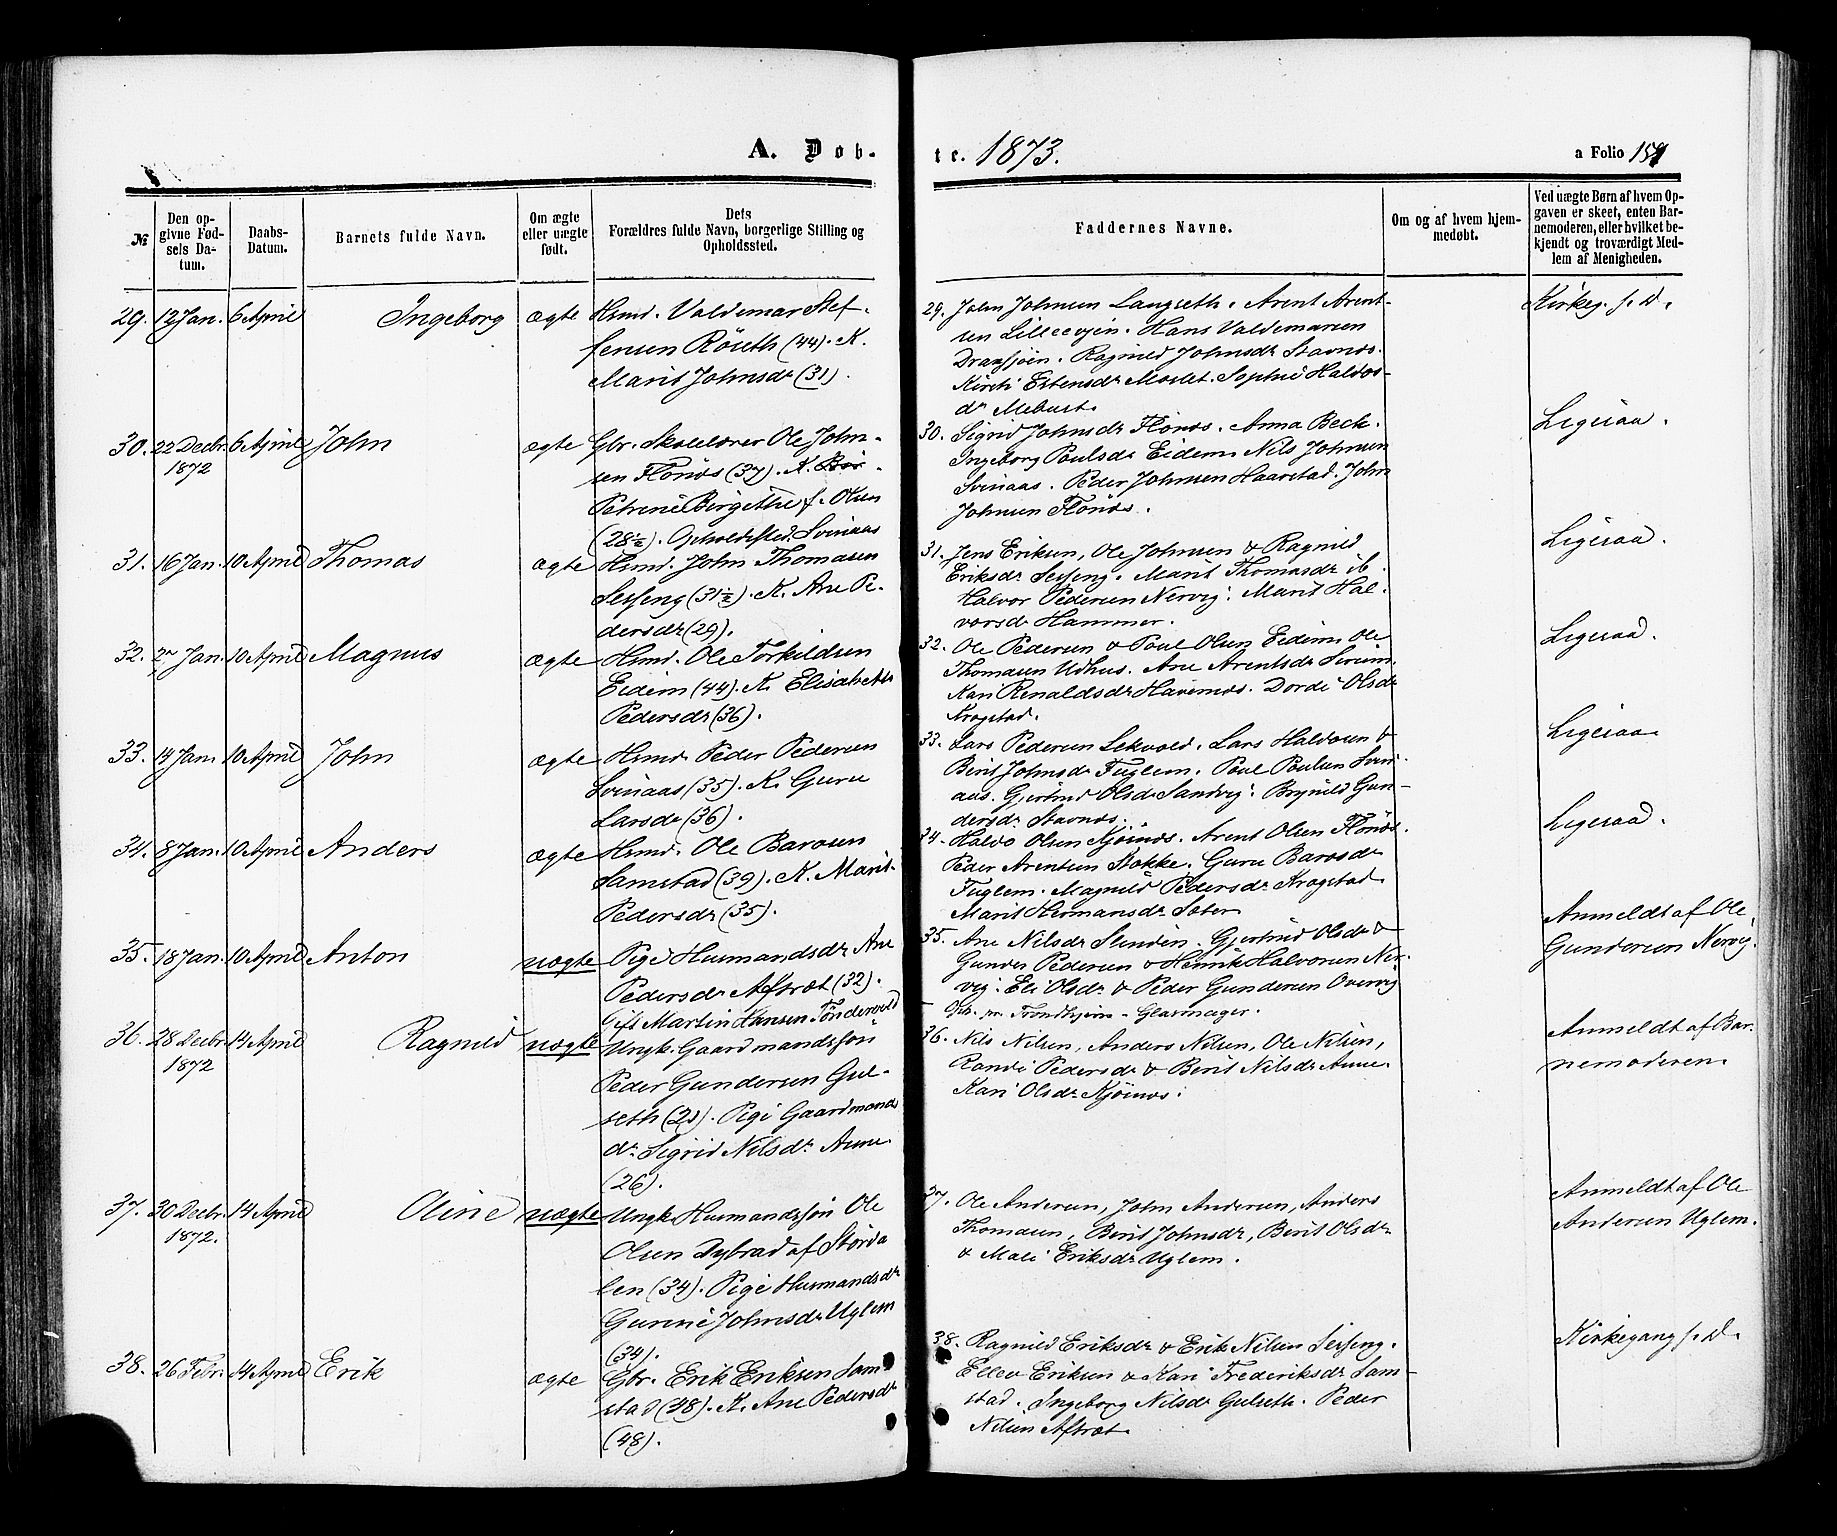 A. Døb-
te. 1873.
a Folio 151
№
Den op-
givne Fød-
sels Da-
tum.
Daabs-
Datum.
Barnets fulde Navn.
Om ægte
eller uægte
født.
Dets
Forældres fulde Navn, borgerlige Stilling og
Opholdssted.
Faddernes Navne.
Om og af hvem hjem-
medøbt.
Ved uægte Børn af hvem Op-
gaven er skeet, enten Bar-
nemoderen, eller hvilket be-
kjendt og troværdigt Med-
lem af Menigheden.
29. 12 Jan. 6 April Ingeborg ægte Hsmd. Valdemar Stef-
fensen Röseth (44). K.
Marit Johnsdr (31).
29. John Johnsen Langseth. Arent Arent-
sen Lilleevjen. Hans Valdemarsen
Draxsjøen. Ragnild Johnsdr Stavnøs.
Kirsti Estensdr Moslet. Sophie Haldos-
dr Mebust.
Kirkeg. s. D.
30. 22 Decbr. 6 April John ægte Gbr. Skolelærer Ole John-
1872
sen Flönæs (37). K. Ber-
Petrine Bergethe f. Olsen
(28½). Opholdssted Svinaas
30. Sigrid Johnsdr Flönæs. Anna Beck.
Ingeborg Poulsdr Eidem. Nils Johnsen
Svinaas. Peder Johnsen Haarstad. John
Johnsen Flönæs.
Ligesaa.
31. 16 Jan. 10 April Thomas ægte Hsmd. John Thomasen
Sesseng (31½). K. Ane Pe-
dersdr (29).
31. Jens Eriksen, Ole Johnsen & Ragnild
Eriksdr Sesseng. Marit Thomasdr ib.
Halvor Pedersen Nervig. Marit Hal-
vorsdr Hammer.
Ligesaa.
32. 27 Jan. 10 April Magnus ægte Hsmd. Ole Torkildsen
Eidem (44). K. Elisabeth
Pedersdr (36).
32. Ole Pedersen & Poul Olsen Eidem. Ole
Thomasen Udhus. Ane Arentsdr
Kari Renaldsdr Havernæs. Dordi Olsdr
Kragstad.
Ligesaa.
33. 14 Jan. 10 April John ægte Hsmd. Peder Pedersen
Svinaas (35). K. Guru
Larsdr (36).
33. Lars Pedersen Sekvold. Lars Haldosen &
Berit Johnsdr Fuglem. Poul Poulsen Svin-
aas. Gjertrud Olsdr Sandvig. Brynild Gun-
dersdr Stavnæs.
Ligesaa
34. 8 Jan. 10 April Anders ægte Hsmd. Ole Barosen
Samstad (39). K. Marit
Pedersdr (35).
34. Haldo Olsen Kjösnæs. Arent Olsen Flönæs.
Peder Arentsen Stokke. Guru Barosdr
Fuglem. Magnild Pedersdr Kragstad
Marit Hermansdr Sæter
Ligesaa.
35. 18 Jan. 10 April Anton uægte Pige Husmandsdr Ane
Pedersdr Aftræt (32).
Gift Martin Hansen Töndervold
35. Ane Nilsdr Slinden. Gjertrud Olsdr &
Gunder Pedersen & Henrik Halvorsen Ner-
vig. Eli Olsdr & Peder Gundersen Overvig
Trondhjem - Glasmager.
Anmeldt af Ole
Gundersen Nervig.
36. 28 Decbr. 14 April Ragnild uægte Ungk. Gaardmandssøn
1872
Peder Gundersen Gul-
seth (21). Pige Gaardmands
dr Sigrid Nilsdr Aune
(26).
36. Nils Nilsen, Anders Nilsen, Ole Nilsen,
Randi Pedersdr & Berit Nilsdr Aune.
Kari Olsdr Kjösnæs.
Anmeldt af Bar-
nemoderen.
37. 30 Decbr. 14 April Oline uægte Ungk. Husmandssøn Ole
1872.
Olsen Dybvad af Stjørda
len (34). Pige Husmandsdr
Gurine Johnsdr Uglem
(34).
37. Ole Andersen, John Andersen, Anders
Thomasen, Berit Johnsdr, Berit Olsdr
& Mali Eriksdr Uglem.
Anmeldt af Ole
Andersen Uglem.
38. 26 Febr. 14 April Erik ægte Gbr. Erik Eriksen Sam-
stad (48). K. Ane Pedersdr
(48).
38. Ragnild Eriksdr & Erik Nilsen Sesseng.
Ellev Eriksen & Kari Frederiksdr Sam-
stad. Ingeborg Nilsdr Gulseth. Peder
Nilsen Aftræt.
Kirkegang s. D.